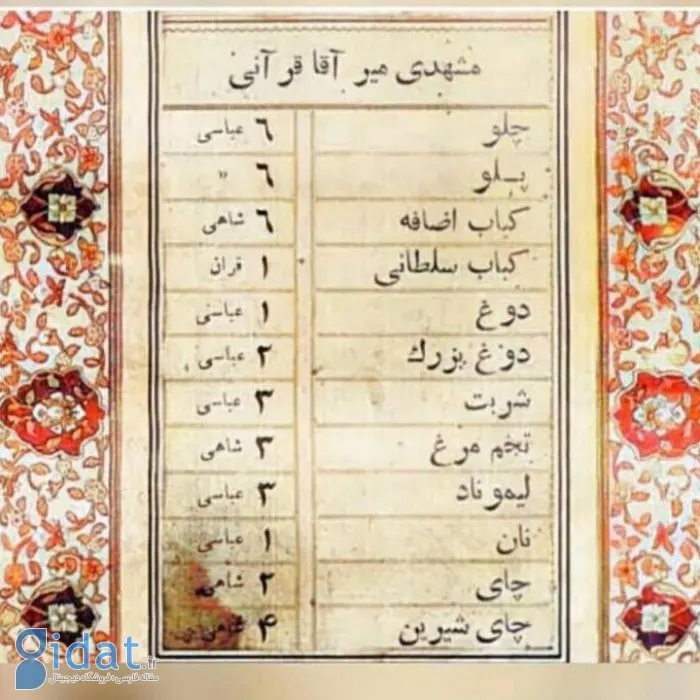 مشهدی میر آقا قرآنی
چلو ٦ عباسی
پلو ٦ »
کباب اضافه ٦ شاهی
کباب سلطانی ۱ قران
دوغ ۱ عباسی
دوغ بزرك ۲ عباسی
شربت ۳ عباسی
تخم مرغ ۳ شاهی
لیموناد ۳ عباسی
نان ۱ عباسی
چای ۲ شاهی
چای شیرین ۴
gidat.ir
مقاله فارسی، فروشگاه دیجیتال